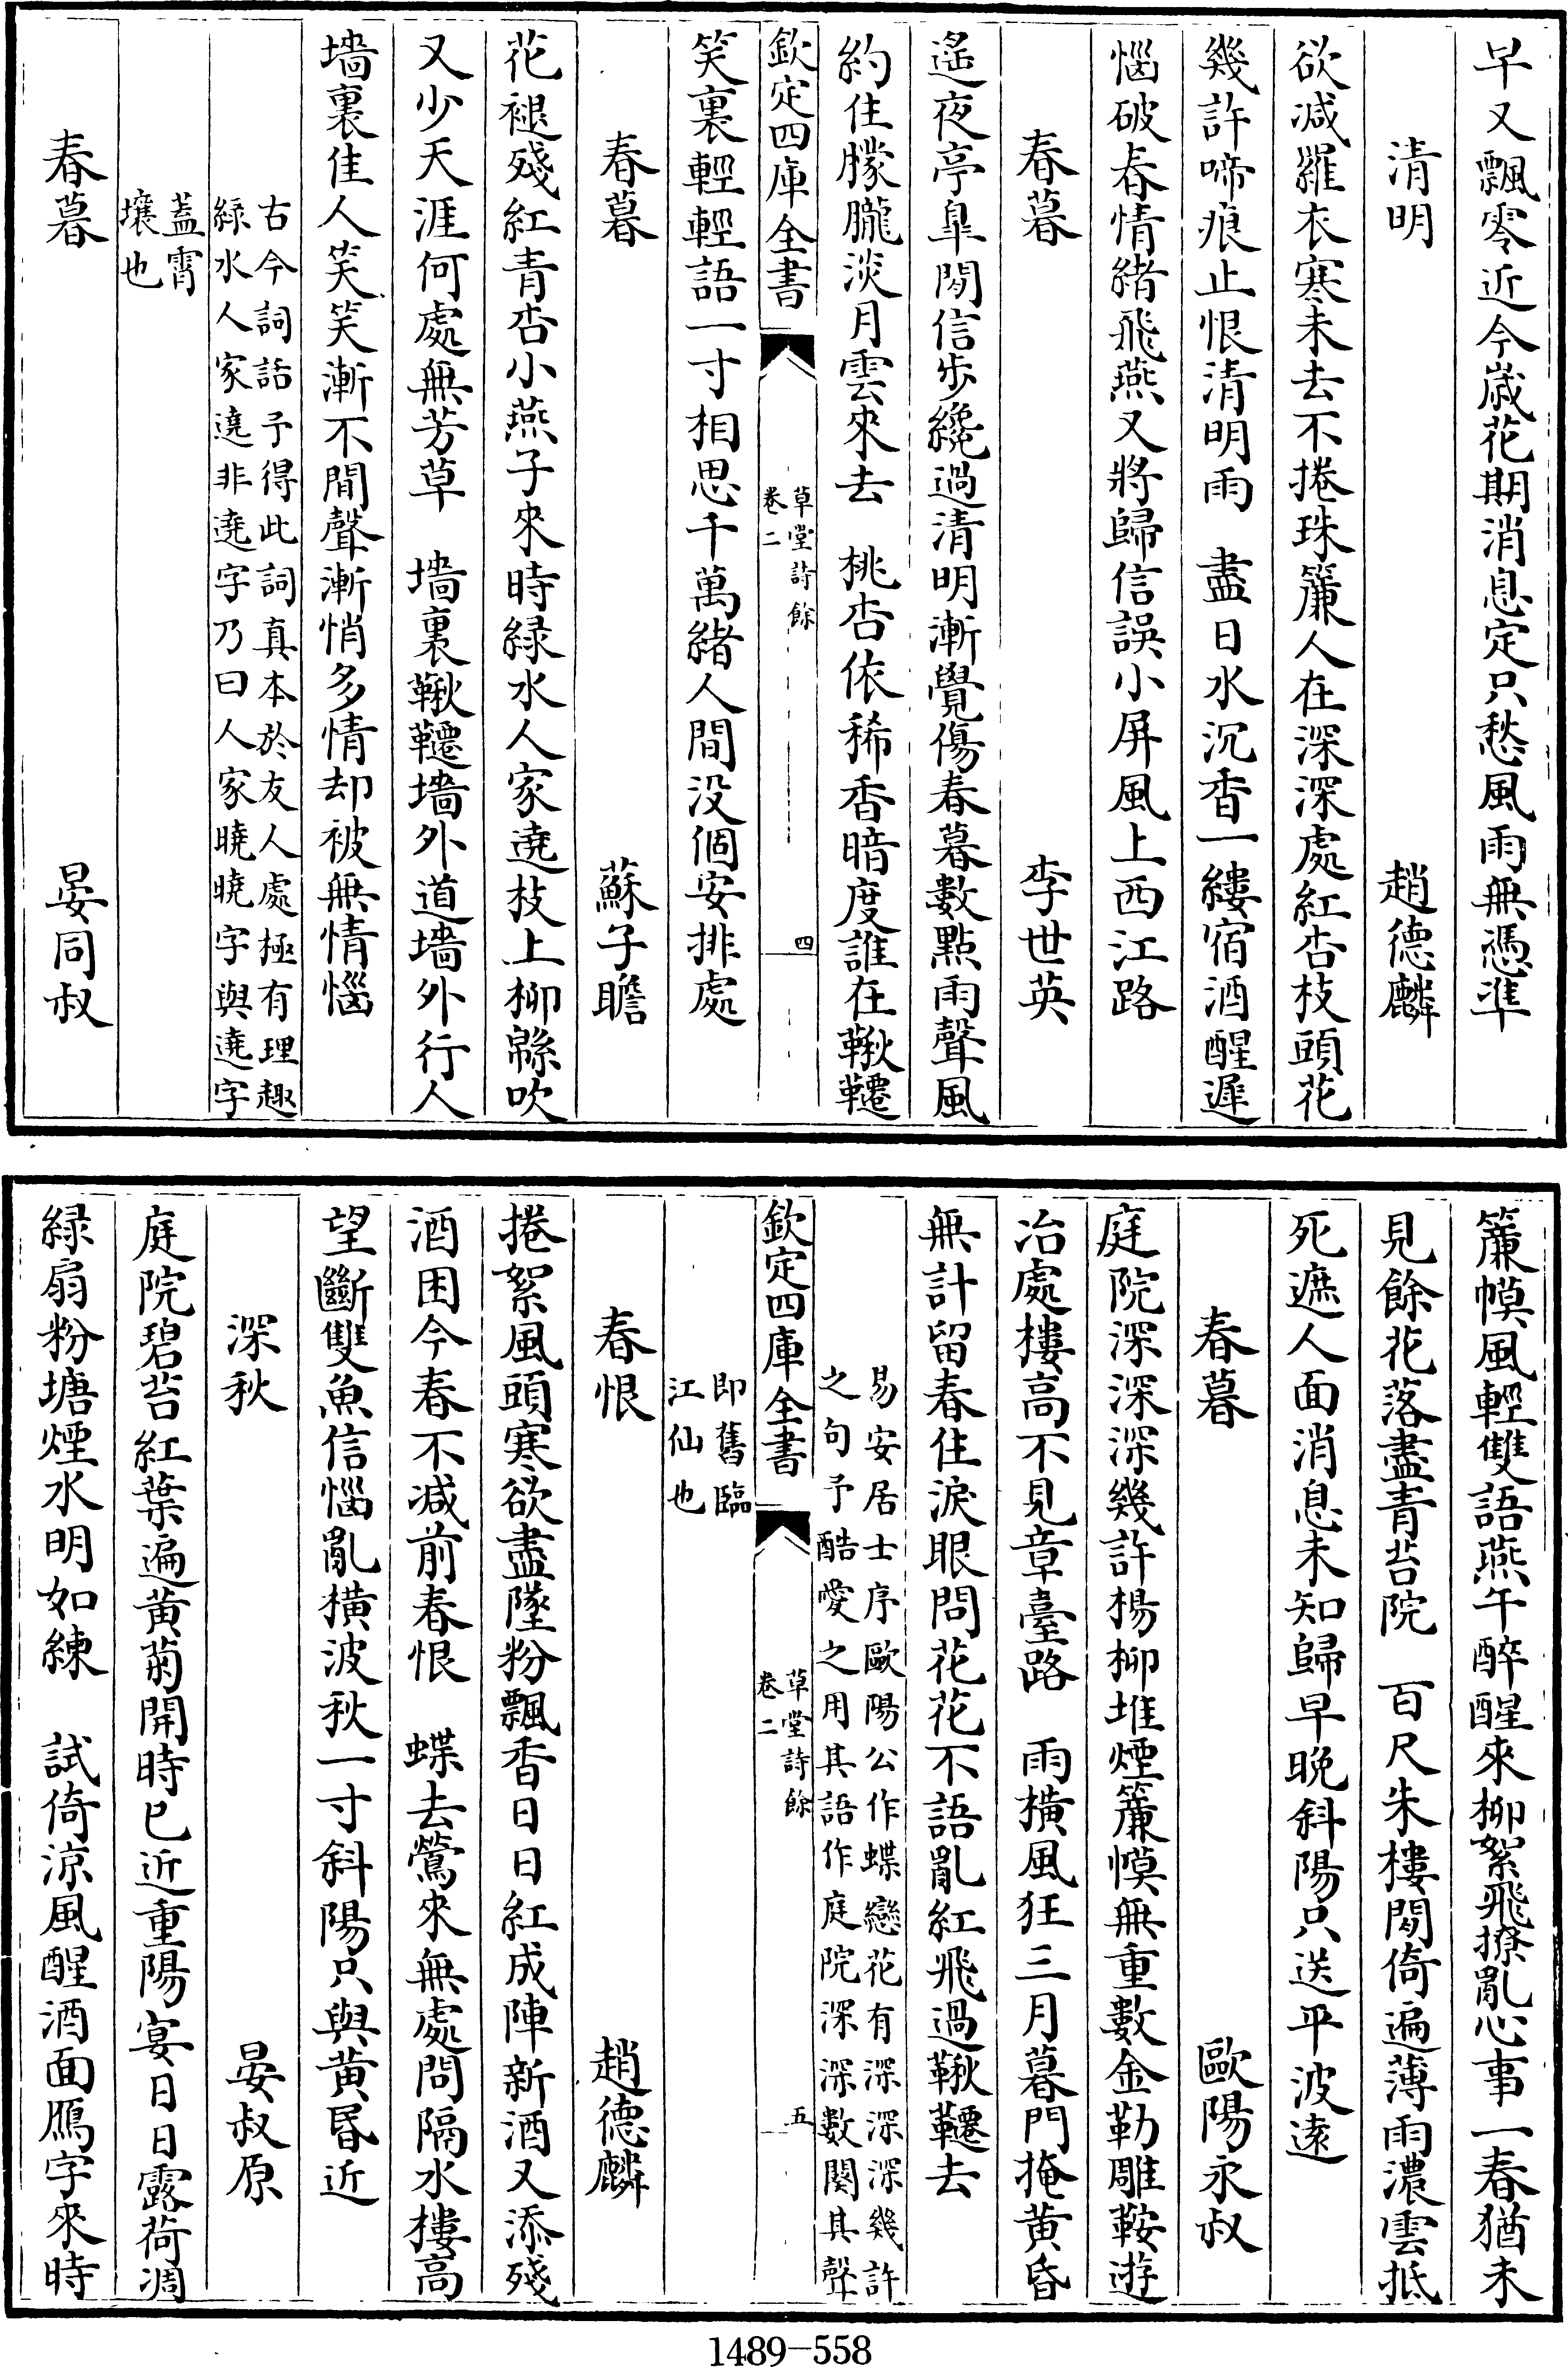 早又飄零近今歳花期消息定只愁風雨無憑準
清明　趙德麟
欲減羅衣寒未去不捲珠簾人在深深處紅杏枝頭花
幾許啼痕止恨清明雨　盡日水沉香一縷宿酒醒遲
惱破春情緒飛燕又將歸信誤小屏風上西江路
春暮　李世英
遙夜亭臯閒信步纔過清明漸覺傷春暮數點雨聲風
約住朦朧淡月雲來去　桃杏依稀香暗度誰在鞦韆
欽定四庫全書　草堂詩餘　卷二　四
笑裏輕輕語一寸相思千萬緒人間没個安排處
春暮　蘇子瞻
花褪殘紅青杏小燕子來時緑水人家遶枝上柳緜吹
又少天涯何處無芳草　墻裏鞦韆墻外道墻外行人
墻裏佳人笑笑漸不聞聲漸悄多情却被無情惱
古今詞話予得此詞真本於友人處極有理趣
緑水人家遶非遶字乃曰人家曉曉字與遶字
蓋霄
壤也
春暮　晏同叔
簾幙風輕雙語燕午醉醒來柳絮飛撩亂心事一春猶未
見餘花落盡青苔院　百尺朱樓閒倚遍薄雨濃雲抵
死遮人面消息未知歸早晚斜陽只送平波遠
春暮　歐陽永叔
庭院深深深幾許楊柳堆煙簾幙無重數金勒雕鞍遊
冶處樓高不見章臺路　雨横風狂三月暮門掩黄昏
無計留春住淚眼問花花不語亂紅飛過鞦韆去
易安居士序歐陽公作蝶戀花有深深深幾許
之句予酷愛之用其語作庭院深深數闋其聲
欽定四庫全書　草堂詩餘　卷二　五
即舊臨
江仙也
春恨　趙德麟
捲絮風頭寒欲盡墜粉飄香日日紅成陣新酒又添殘
酒困今春不減前春恨　蝶去鶯來無處問隔水樓高
望斷雙魚信惱亂横波秋一寸斜陽只與黄昏近
深秋　晏叔原
庭院碧苔紅葉遍黄菊開時已近重陽宴日日露荷凋
緑扇粉塘煙水明如練　試倚涼風醒酒面鴈字來時
1489-558